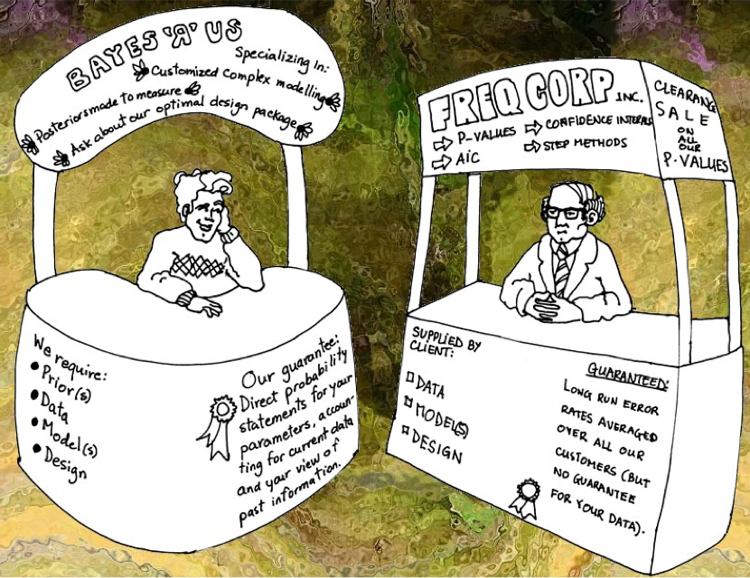 BAYES 'Я' US
Specializing in:
Customized complex modelling
Posteriors made to measure
Ask about our optimal design package
We require:
Prior(s)
Data
Model(s)
Design
Our guarantee:
Direct probability
statements for your
parameters, accoun-
ting for current data
and your view of
past information.
FREQ CORP INC.
P-VALUES
CONFIDENCE INTERVALS
AIC
STEP METHODS
CLEARANCE
SALE
ON
ALL
OUR
P-VALUES
SUPPLIED BY
CLIENT:
DATA
MODEL(S)
DESIGN
GUARANTEED:
LONG RUN ERROR
RATES AVERAGED
OVER ALL OUR
CUSTOMERS (BUT
NO GUARANTEE
FOR YOUR DATA).